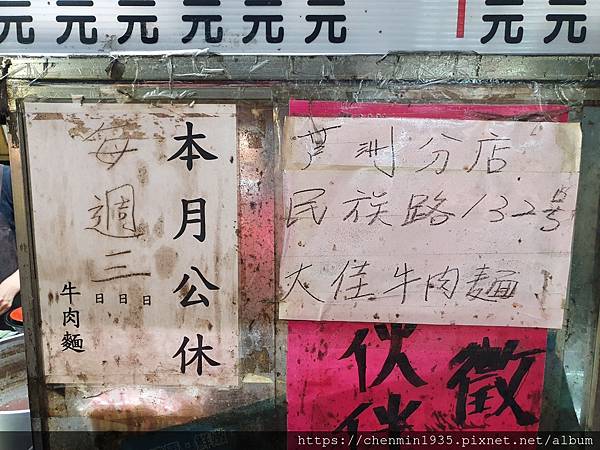 元元元元元元元 元元元
本月公休
每週三
日日日
牛肉麵
芦洲分店
民族路132号
大佳牛肉麵
徵
伙伴
https://chenmin1935.pixnet.net/album